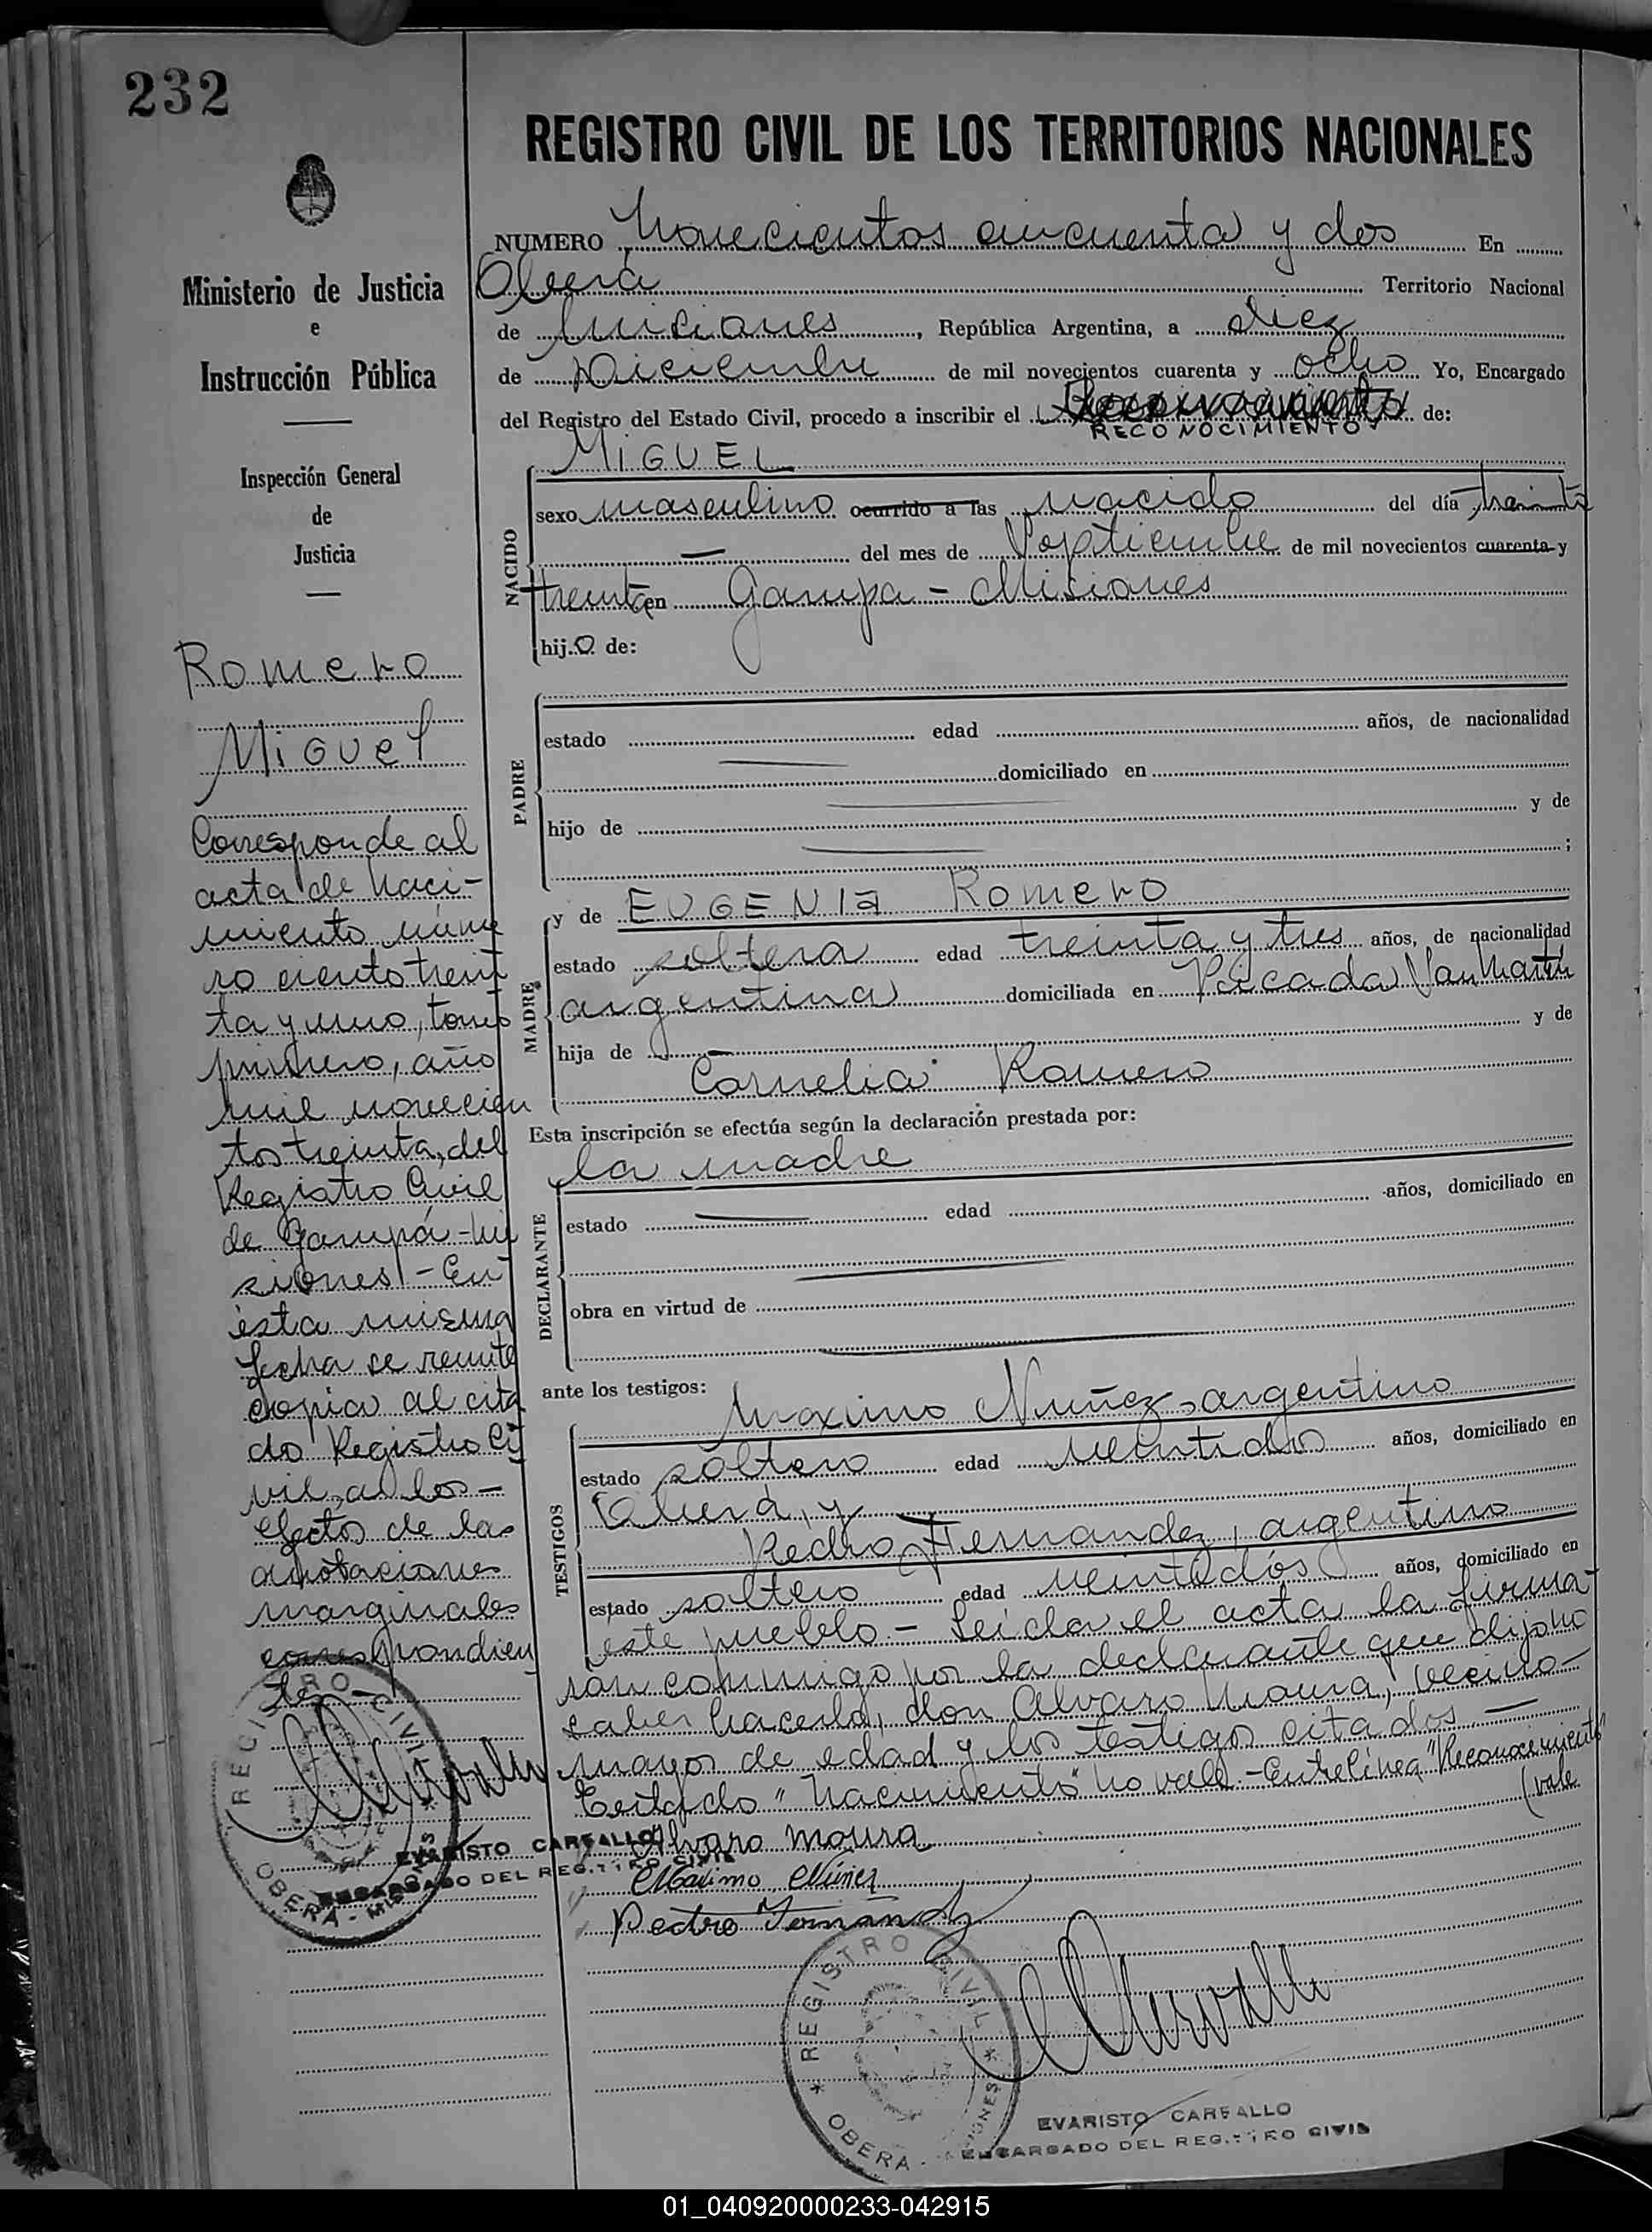 232
Ministerio de Justicia
e
Instrucción Pública
Inspección General
de
Justicia
Romero
Miguel
Corresponde al
acta de naci-
miento núme
ro ciento trein
ta y uno, tomo
primero, año
mil novecien
tos treinta, del
Registro Civil
de Gampá - Mi
siones - En
ésta misma
fecha se remite
copia al cita
do Registro Ci
vil, a los -
efectos de las
anotaciones
marginales
correspondien
tes
REGISTRO CIVIL
OBERA - MISIONES
EVARISTO CARBALLO
ENCARGADO DEL REGISTRO CIVIL
REGISTRO CIVIL DE LOS TERRITORIOS NACIONALES
NUMERO Novecientos cincuenta y dos En
Oberá Territorio Nacional
de Misiones, República Argentina, a diez
de Diciembre de mil novecientos cuarenta y ocho Yo, Encargado
del Registro del Estado Civil, procedo a inscribir el de:
RECONOCIMIENTO
MIGUEL
NACIDO
sexo masculino ocurrido a las nacido del día treinta
— del mes de Septiembre de mil novecientos cuarenta y
treinta en Gampa - Misiones
hijo de:
PADRE
estado edad años, de nacionalidad
domiciliado en
hijo de y de
;
MADRE
y de EUGENIA Romero
estado soltera edad treinta y tres años, de nacionalidad
argentina domiciliada en Picada San Martín
hija de — y de
Cornelia Romero
Esta inscripción se efectúa según la declaración prestada por:
la madre
DECLARANTE
estado edad años, domiciliado en
obra en virtud de
ante los testigos:
TESTIGOS
Maximo Nuñez, argentino
estado soltero edad veintidos años, domiciliado en
Oberá, y
Pedro Fernandez, argentino
estado soltero edad veintidós años, domiciliado en
éste pueblo. - Leída el acta la firma-
ron conmigo por la declarante que dijo no
saber hacerlo, don Alvaro Moura, vecino -
mayor de edad y los testigos citados. —
Testado "Nacimiento" no vale. - Entrelínea "Reconocimiento"
(vale
Alvaro Moura
Maximo Núñez
Pedro Fernandz
REGISTRO CIVIL
OBERA - MISIONES
EVARISTO CARBALLO
ENCARGADO DEL REGISTRO CIVIL
01_040920000233-042915